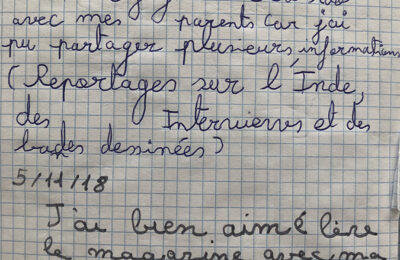 avec mes parents car j'ai
pu partager plusieurs informations
(Reportages sur l'Inde,
des Interviews et des
bandes dessinées)
5/11/18
J'ai bien aimé lire
le magazine avec ma